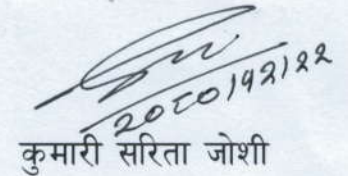 २०८०।१२।२२
कुमारी सरिता जोशी